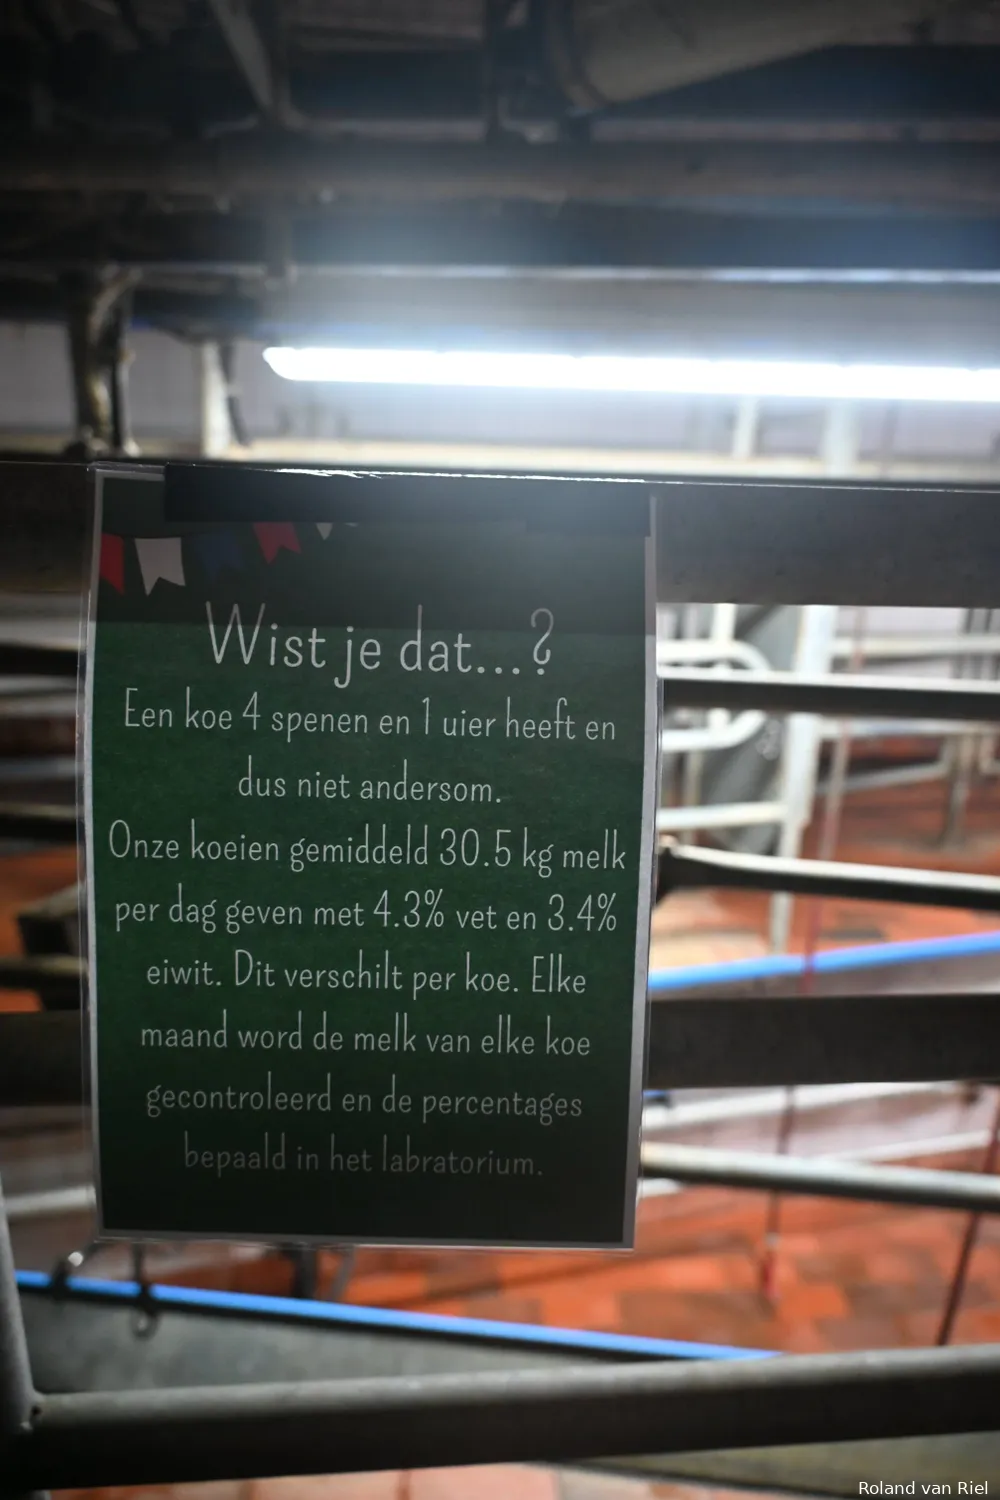 Wist je dat...?
Een koe 4 spenen en 1 uier heeft en
dus niet andersom.
Onze koeien gemiddeld 30.5 kg melk
per dag geven met 4.3% vet en 3.4%
eiwit. Dit verschilt per koe. Elke
maand word de melk van elke koe
gecontroleerd en de percentages
bepaald in het labratorium.
Roland van Riel